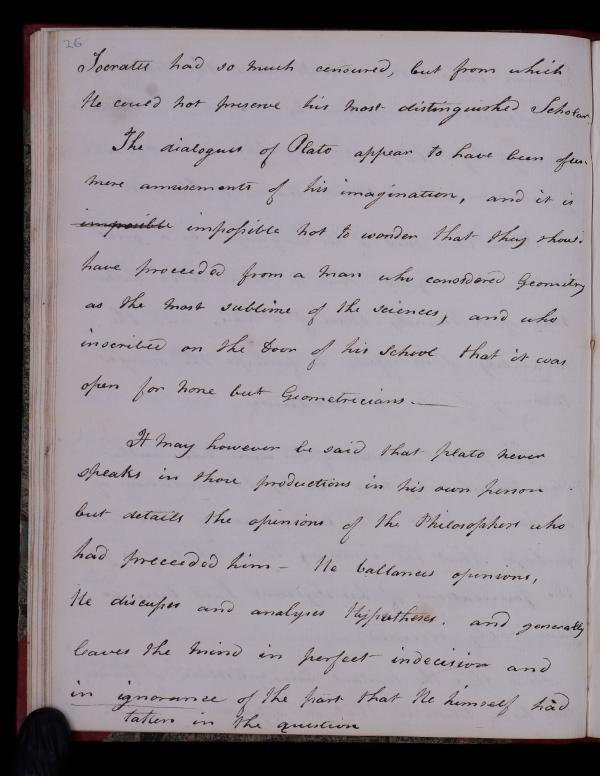 26
Socrates had so much censured, but from which
He could not preserve his most distinguished Scholar
The dialogues of Plato appear to have been often
mere amusements of his imagination, and it is
impossible impossible not to wonder that they should
have proceeded from a man who considered Geometry
as the most sublime of the sciences, and who
inscribed on the Door of his School that it was
open for none but Geometricians. —
It may however be said that Plato never
speaks in those productions in his own person
but details the opinions of the Philosophers who
had preceeded him – He ballances opinions,
He discusses and analyses Hypotheses. and generally
leaves the mind in perfect indecision and
in ignorance of the part that He himself had
taken in the question